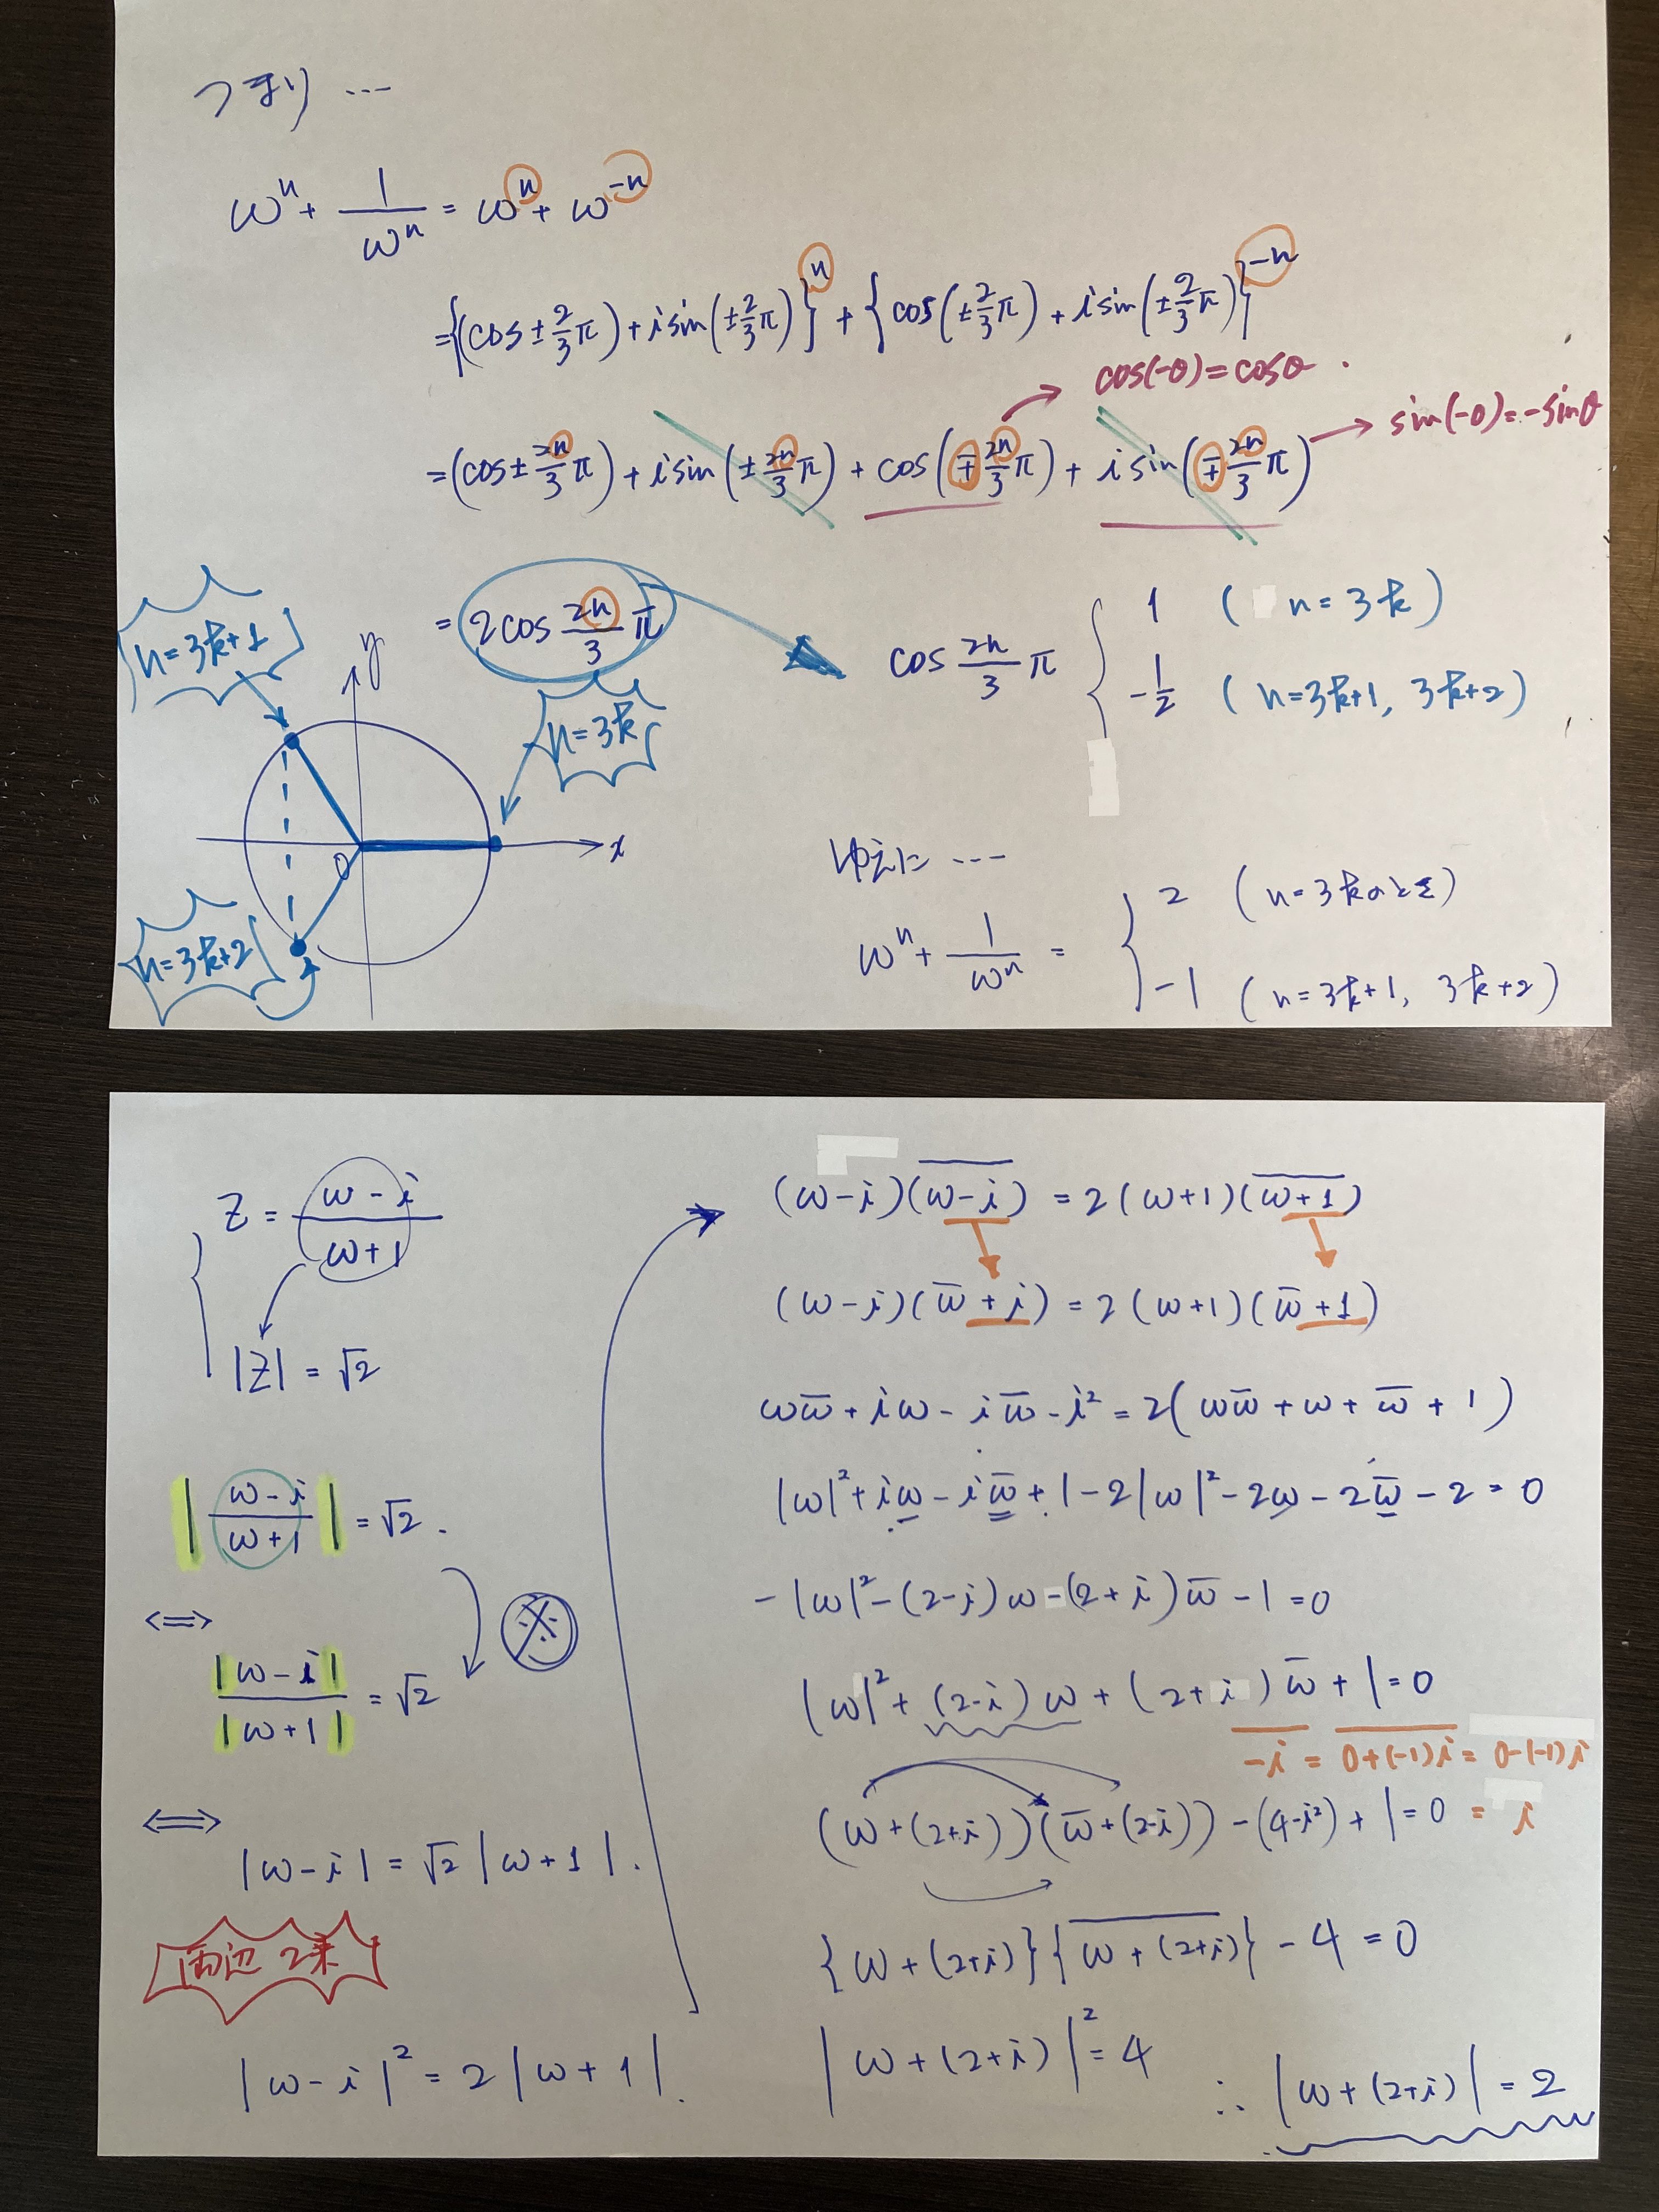 つまり …
ω^n + 1/ω^n = ω^n + ω^{-n}
={(cos±2/3π)+i sin(±2/3π)}^n + {cos(±2/3π)+i sin(±2/3π)}^{-n}
cos(-θ)=cosθ
sin(-θ)=-sinθ
=(cos±2n/3π)+i sin(±2n/3π)+cos(∓2n/3π)+i sin(∓2n/3π)
= 2cos 2n/3 π
cos 2n/3 π { 1 (n=3k)
-1/2 (n=3k+1, 3k+2)
n=3k+1
n=3k
n=3k+2
y
x
O
ゆえに …
ω^n + 1/ω^n = { 2 (n=3kのとき)
-1 (n=3k+1, 3k+2)
Z = (ω-i)/(ω+1)
|Z| = √2
|(ω-i)/(ω+1)| = √2.
⇔
※
|ω-i|/|ω+1| = √2
⇔
|ω-i| = √2|ω+1|.
両辺2乗
|ω-i|² = 2|ω+1|.
(ω-i)(\overline{ω-i}) = 2(ω+1)(\overline{ω+1})
(ω-i)(ω̄+i) = 2(ω+1)(ω̄+1)
ωω̄+iω-iω̄-i² = 2(ωω̄+ω+ω̄+1)
|ω|²+iω-iω̄+1-2|ω|²-2ω-2ω̄-2=0
-|ω|²-(2-i)ω-(2+i)ω̄-1=0
|ω|²+(2-i)ω+(2+i)ω̄+1=0
-i = 0+(-1)i = 0-(-1)i
= i
(ω+(2+i))(ω̄+(2-i))-(4-i²)+1=0
{ω+(2+i)}{\overline{ω+(2+i)}}-4=0
|ω+(2+i)|²=4
∴ |ω+(2+i)|=2